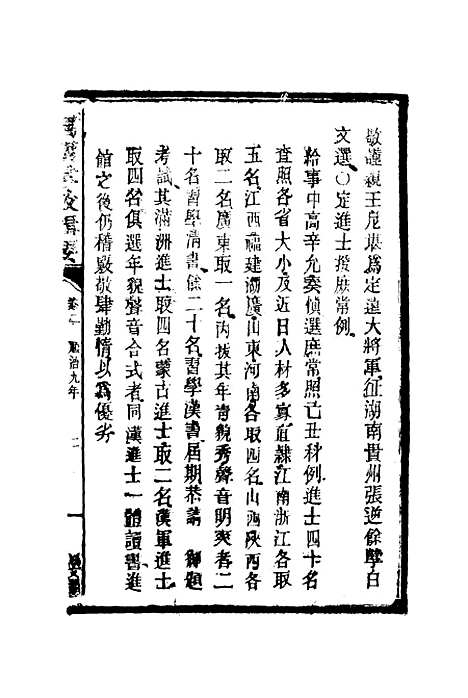 敬謹親王尼堪為定遠大將軍征湖南貴州張逆餘孽白
文選○定進士授庶常例
給事中高辛允奏傎選庶常照己丑科例進士四十名
查照各省大小及近日人材多寡直隷江南浙江各取
五名江西福建湖廣山東河南各取四名山西陝西各
取二名廣東取一名內拔其年靑貌秀聲音明爽者二
十名習學清書餘二十名習學漢書屆期恭請　御題
考試其滿洲進士取四名蒙古進士取二名漢軍進士
取四名俱選年貌聲音合式者同漢進士一體讀書進
館之後仍稽敬肆勤惰以為優劣
卷二　順治九年　二